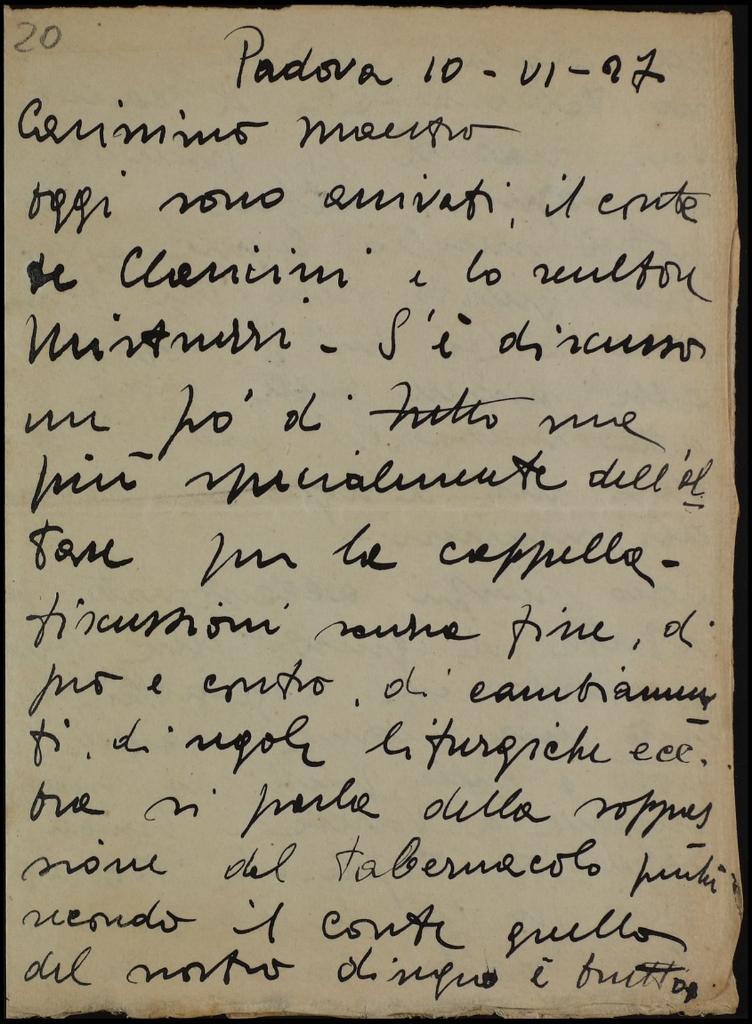 20
Padova 10 - VI - 27
Carissimo Maestro
oggi sono arrivati, il conte
de Claricini e lo scultore
Mistruzzi - S'è discusso
un pò di tutto ma
più specialmente dell'al
tare per la cappella -
discussioni senza fine, di
pro e contro, di cambiamen
ti, di regole liturgiche ecc.
Ora si parla della soppres
sione del tabernacolo perchè
secondo il conte quello
del nostro disegno è brutto